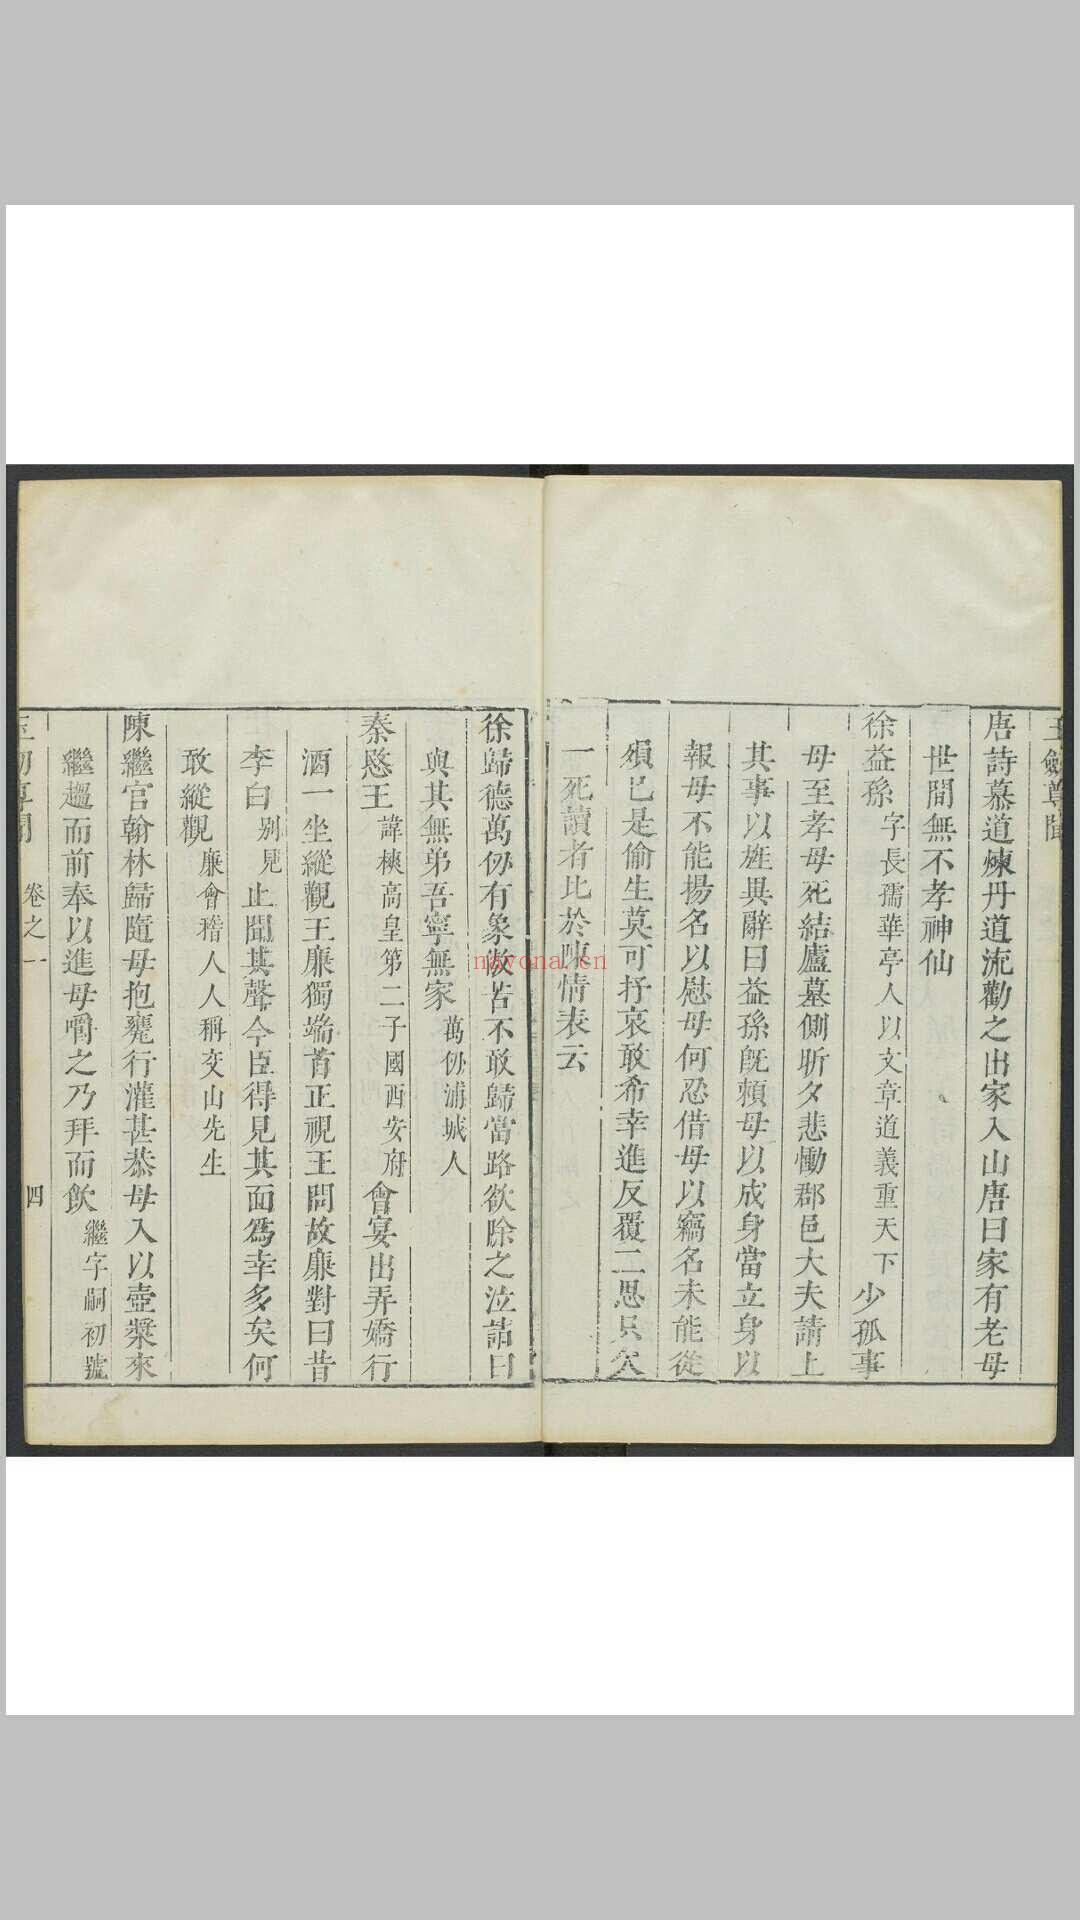 玉劍尊聞
唐詩慕道煉丹道流勸之出家入山唐曰家有老母
世間無不孝神仙
徐益孫字長孺華亭人以文章道義重天下少孤事
母至孝母死結廬墓側昕夕悲慟郡邑大夫請上
其事以旌異辭曰益孫旣賴母以成身當立身以
報母不能揚名以慰母何忍借母以竊名未能從
殞已是偷生莫可抒哀敢希幸進反覆二思只欠
一死讀者比於陳情表云
徐歸德萬仞有象牧苦不敢歸當路欲除之泣請曰
與其無弟吾寧無家萬仞浦城人
秦愍王諱樉高皇第二子國西安府會宴出弄嬌行
酒一坐縱觀王廉獨端首正視王問故廉對曰昔
李白別見止聞其聲今臣得見其面爲幸多矣何
敢縱觀廉會稽人人稱交山先生
陳繼官翰林歸隨母抱甕行灌甚恭母入以壺漿來
繼趨而前奉以進母嚼之乃拜而飲繼字嗣初號
卷之一
四
nayona.cn